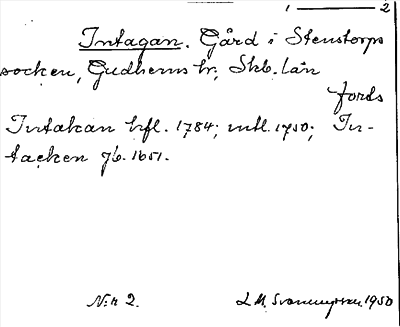 1 — 2
Intagan. Gård i Stenstorps
socken, Gudhems hr, Skb. län
Jords
Intakan hfl. 1784; mtl. 1750; In-
tacken jb. 1651.
N:r 2. 1950